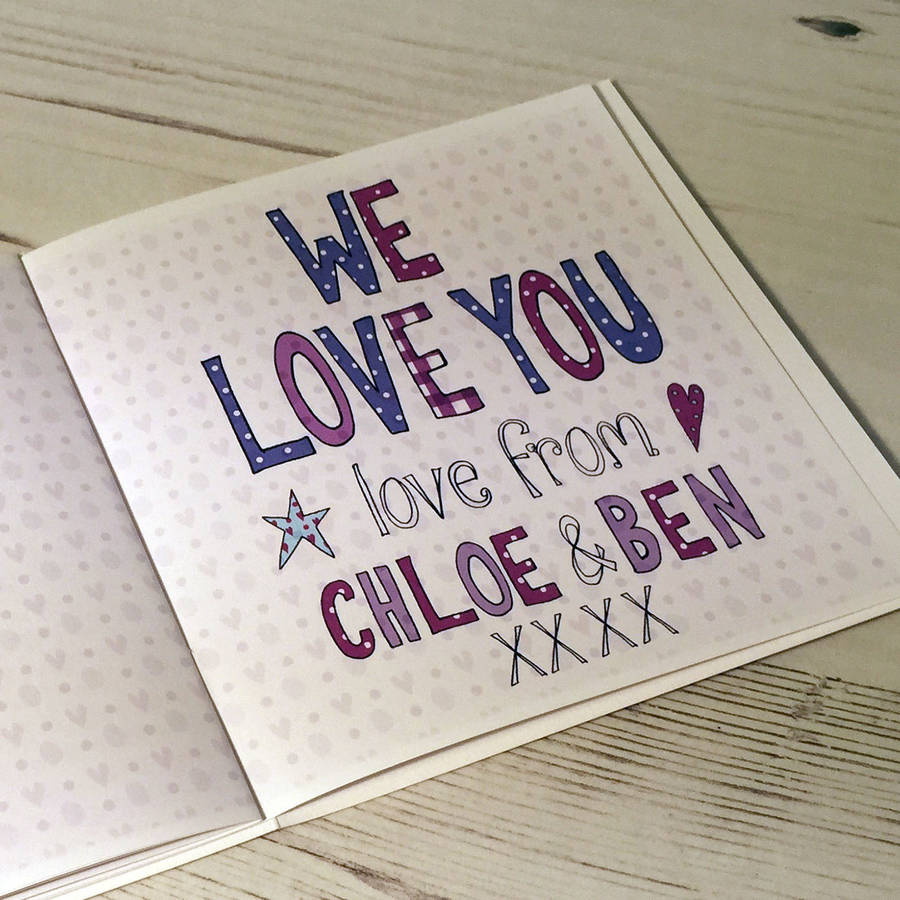 WE
LOVE YOU
love from
CHLOE & BEN
XXXX